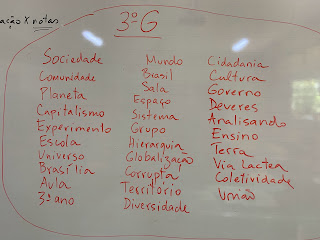 ação x notas
3º G
Sociedade
Comunidade
Planeta
Capitalismo
Experimento
Escola
Universo
Brasília
Aula
3º ano
Mundo
Brasil
Sala
Espaço
Sistema
Grupo
Hierarquia
Globalização
Corrupta
Território
Diversidade
Cidadania
Cultura
Governo
Deveres
Analisando
Ensino
Terra
Via Lactea
Coletividade
União